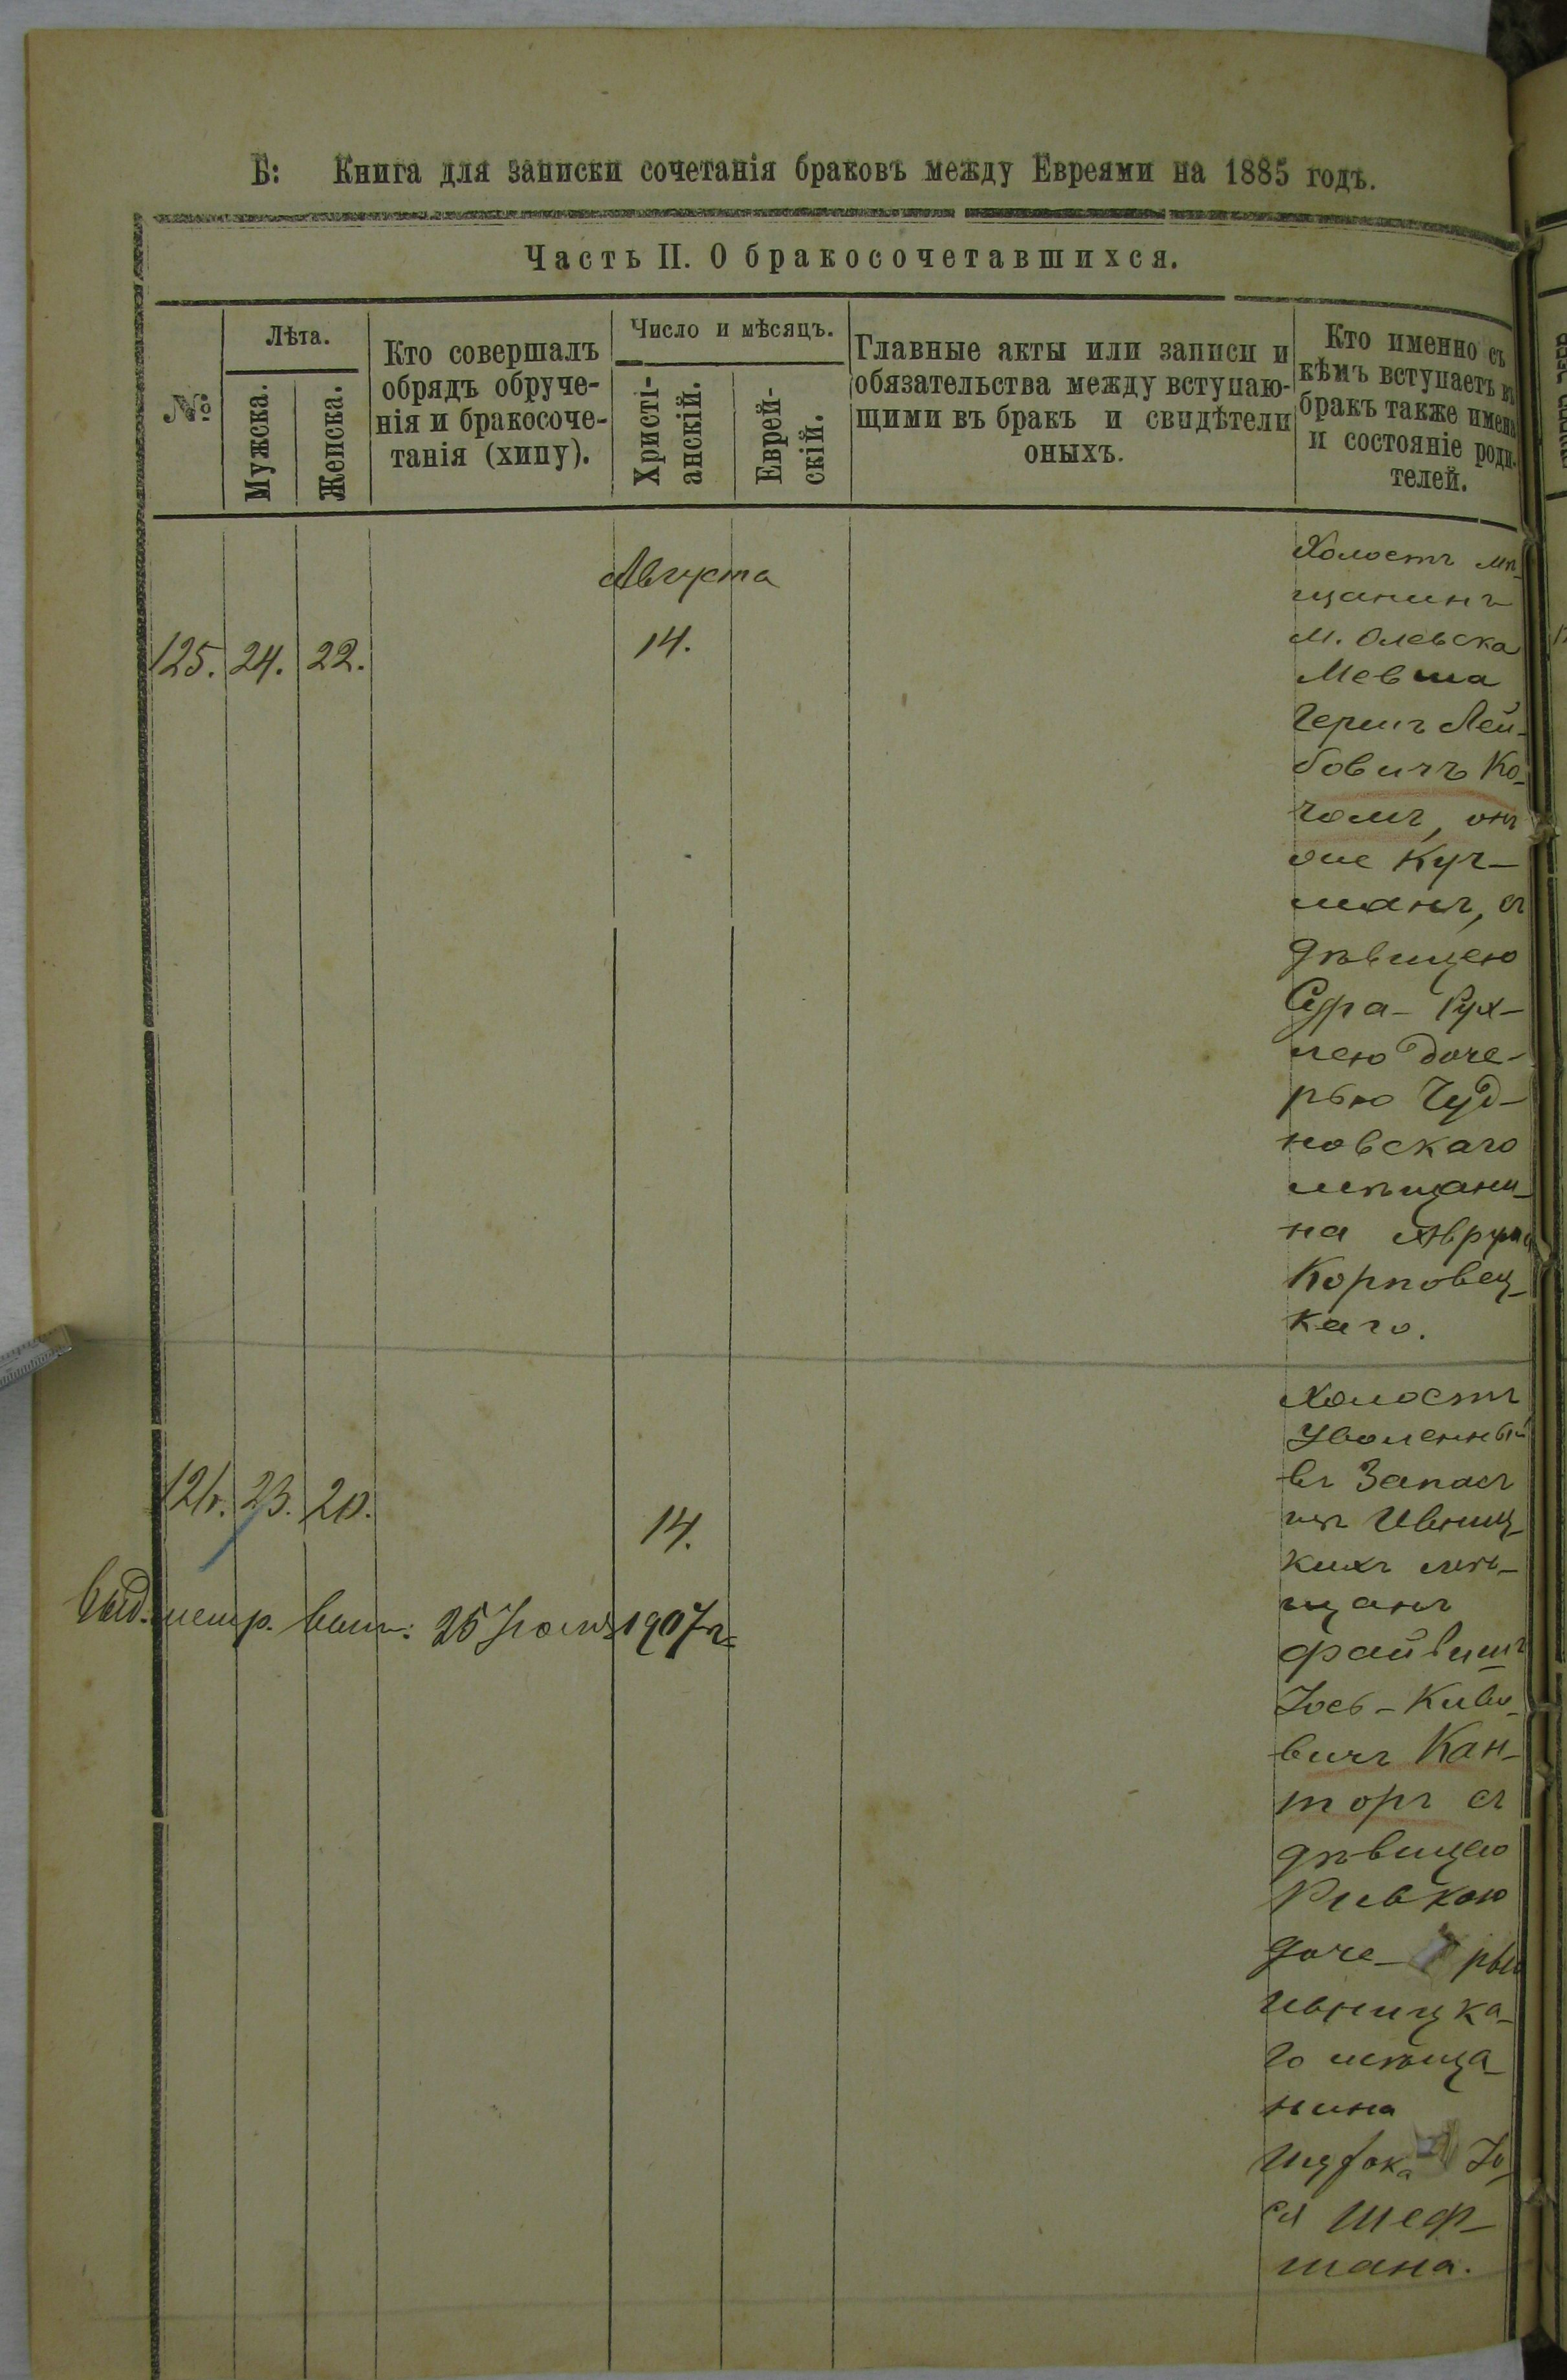 Б: Книга для записки сочетанія браковъ между Евреями на 1885 годъ.
Часть II. О бракосочетавшихся.
№
Лѣта.
Мужска.
Женска.
Кто совершалъ
обрядъ обруче-
нія и бракосоче-
танія (хипу).
Число и мѣсяцъ.
Христі-
анскій.
Еврей-
скій.
Главные акты или записи и
обязательства между вступаю-
щими въ бракъ и свидѣтели
оныхъ.
Кто именно съ
кѣмъ вступаетъ въ
бракъ также имена
и состояніе роди-
телей.
Августа
125. 24. 22. 14.
Холостъ мѣ-
щанинъ
М. Олевска
Мевша
Гершъ Лей-
бовичъ Ко-
гомъ, онъ
же Куч-
манъ, съ
дѣвицею
Сура-Рух-
лею доче-
рью Чуд-
новскаго
мѣщани-
на Аврума
Корповец-
каго.
126. 23. 20. 14.
выд. метр. вып: 25 Іюля 1907 г.
Холостъ
Уволенный
въ Запасъ
изъ Ивниц-
кихъ мѣ-
щанъ
Файвишъ
Іось-Киво-
вичъ Кан-
торъ съ
дѣвицею
Ривкою
доче-рью
Ивницка-
го мѣща-
нина
Іо-
ся Шеф-
мана.